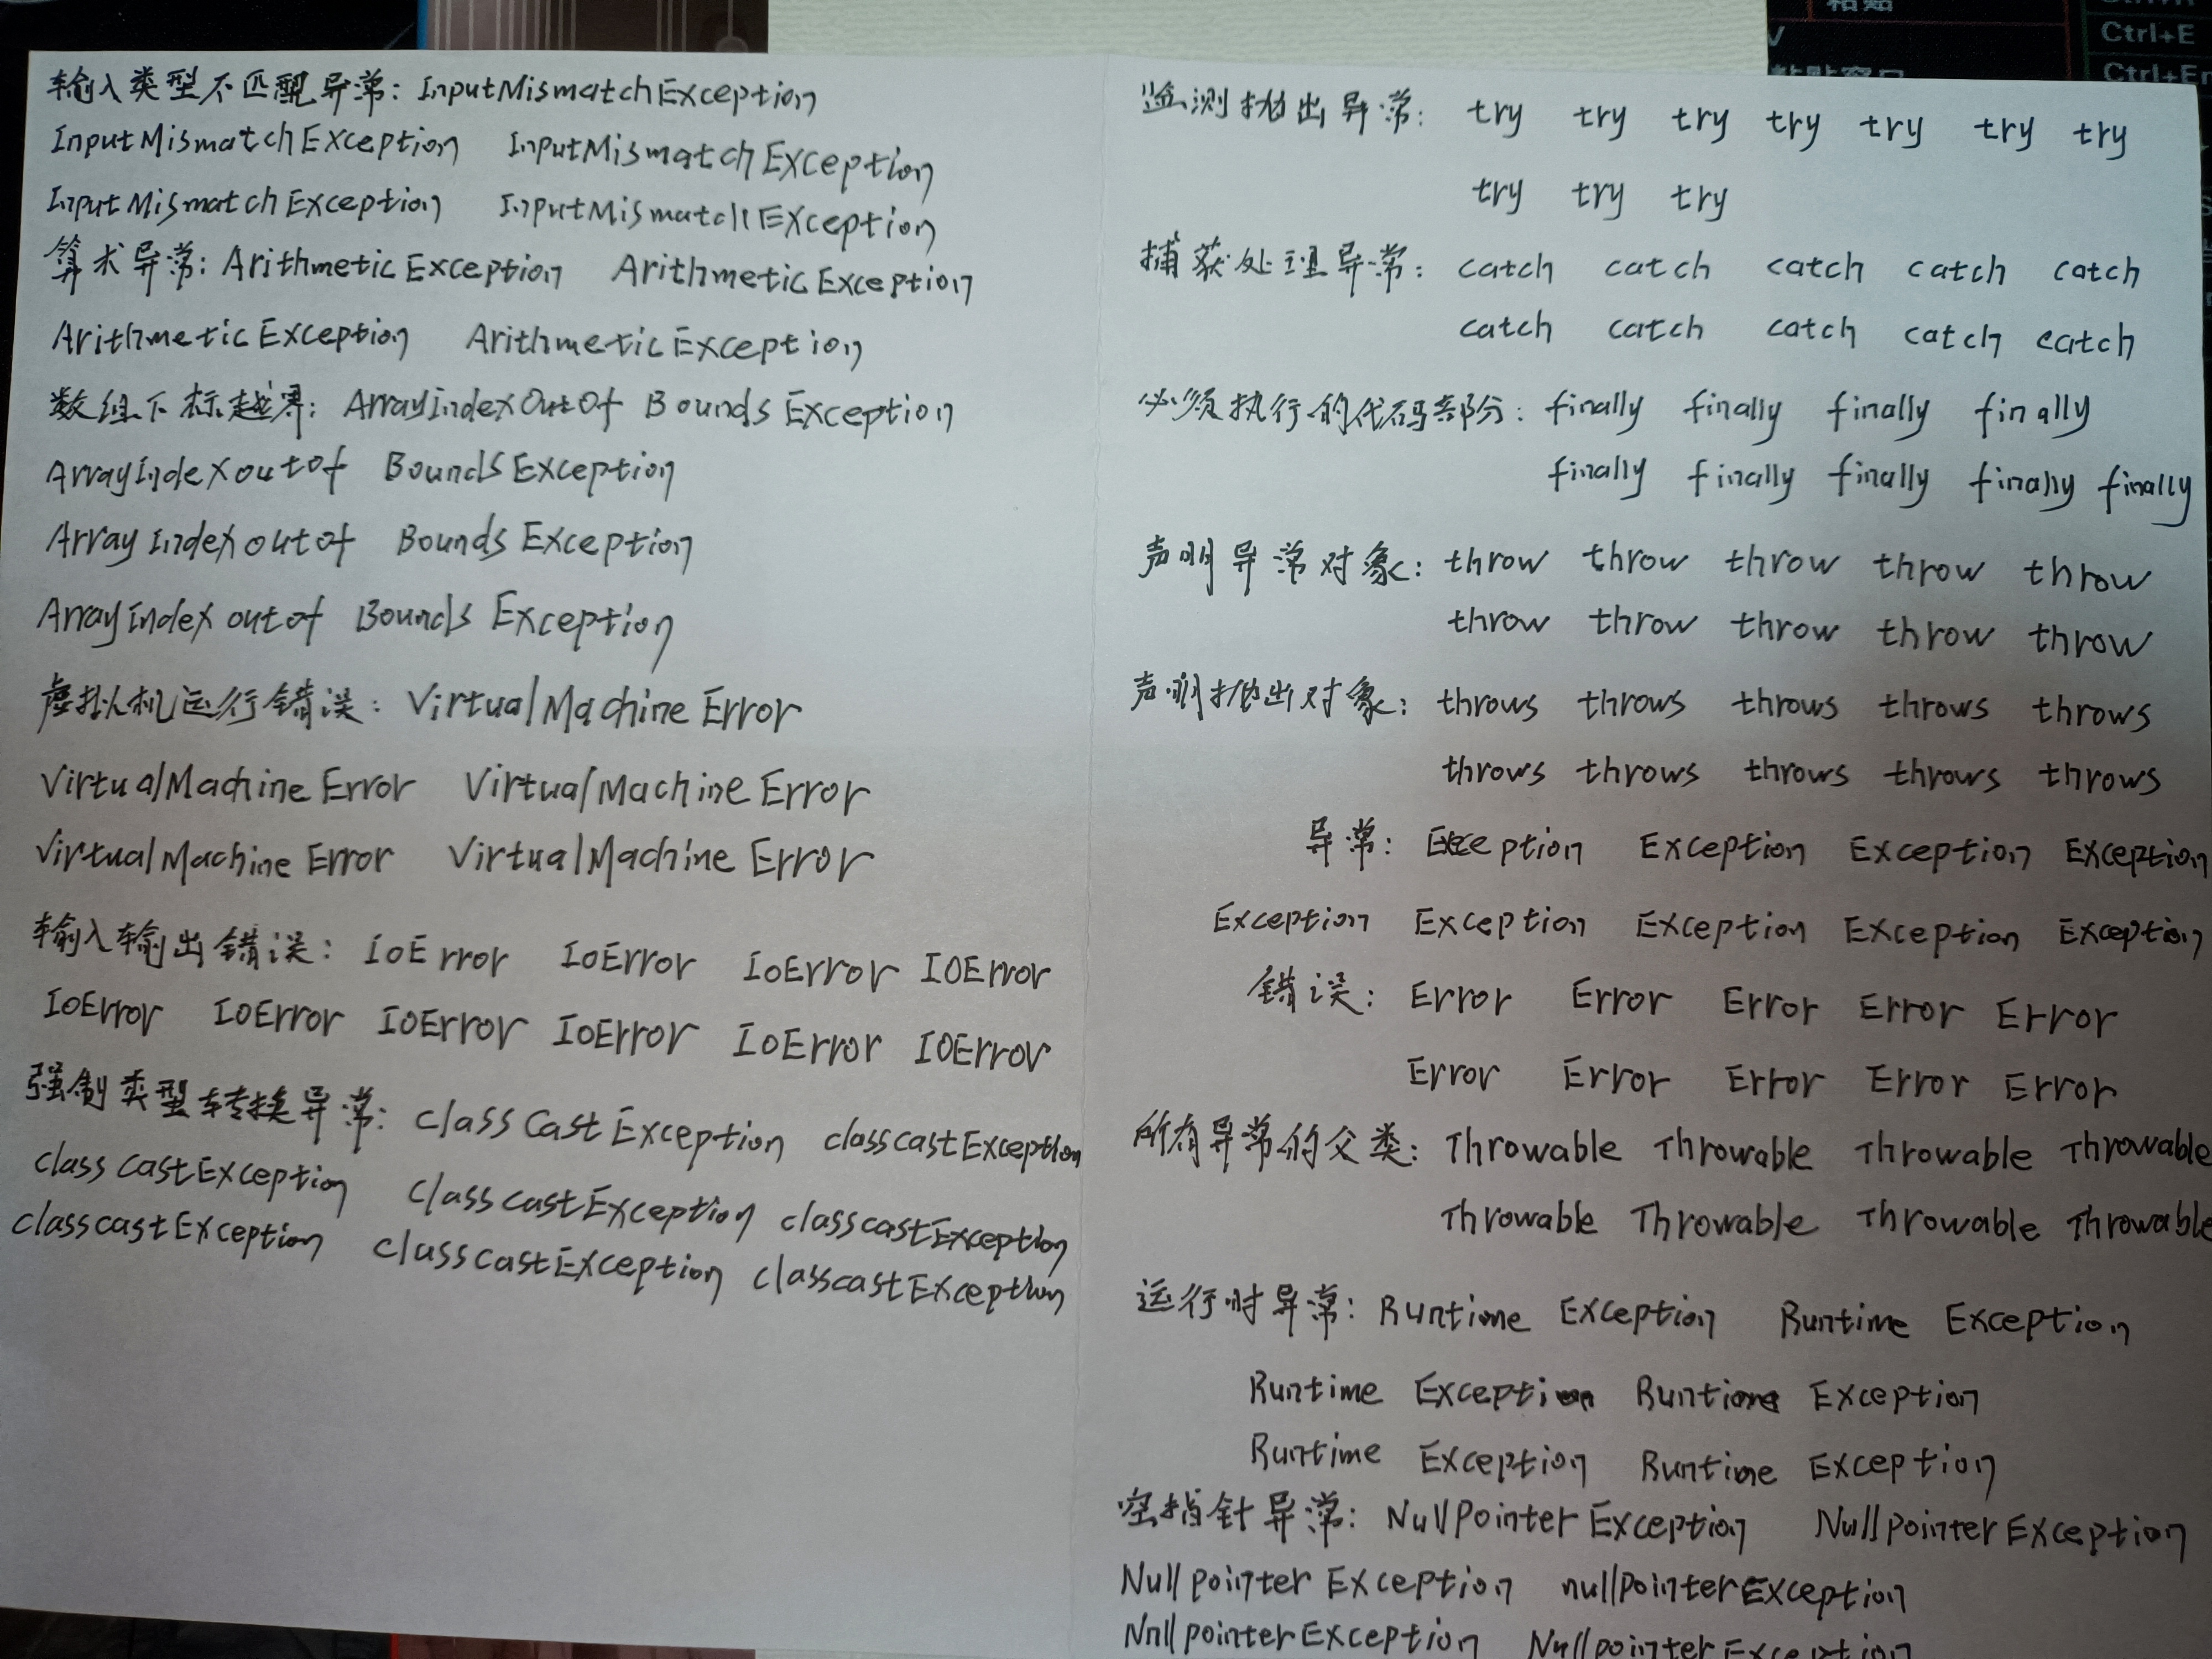 输入类型不匹配异常: InputMismatchException
InputMismatchException InputMismatchException
InputMismatchException InputMismatchException
算术异常: ArithmeticException ArithmeticException
ArithmeticException ArithmeticException
数组下标越界: ArrayIndexOutOf BoundsException
ArrayIndexoutof BoundsException
ArrayIndexoutof BoundsException
ArrayIndexoutof BoundsException
虚拟机运行错误: VirtualMachineError
VirtualMachineError VirtualMachineError
VirtualMachineError VirtualMachineError
输入输出错误: IoError IoError IoError IOError
IoError IoError IoError IoError IoError IOError
强制类型转换异常: classCastException classcastException
classcastException classcastException classcastException
classcastException classcastException classcastException
监测抛出异常: try try try try try try try
try try try
捕获处理异常: catch catch catch catch catch
catch catch catch catch catch
必须执行的代码部分: finally finally finally finally
finally finally finally finally finally
声明异常对象: throw throw throw throw throw
throw throw throw throw throw
声明抛出对象: throws throws throws throws throws
throws throws throws throws throws
异常: Exception Exception Exception Exception
Exception Exception Exception Exception Exception
错误: Error Error Error Error Error
Error Error Error Error Error
所有异常的父类: Throwable Throwable Throwable Throwable
Throwable Throwable Throwable Throwable
运行时异常: Runtime Exception Runtime Exception
Runtime Exception Runtime Exception
Runtime Exception Runtime Exception
空指针异常: NullPointerException NullpointerException
NullpointerException nullpointerException
NullpointerException NullpointerException
粘贴
V
Ctrl+E